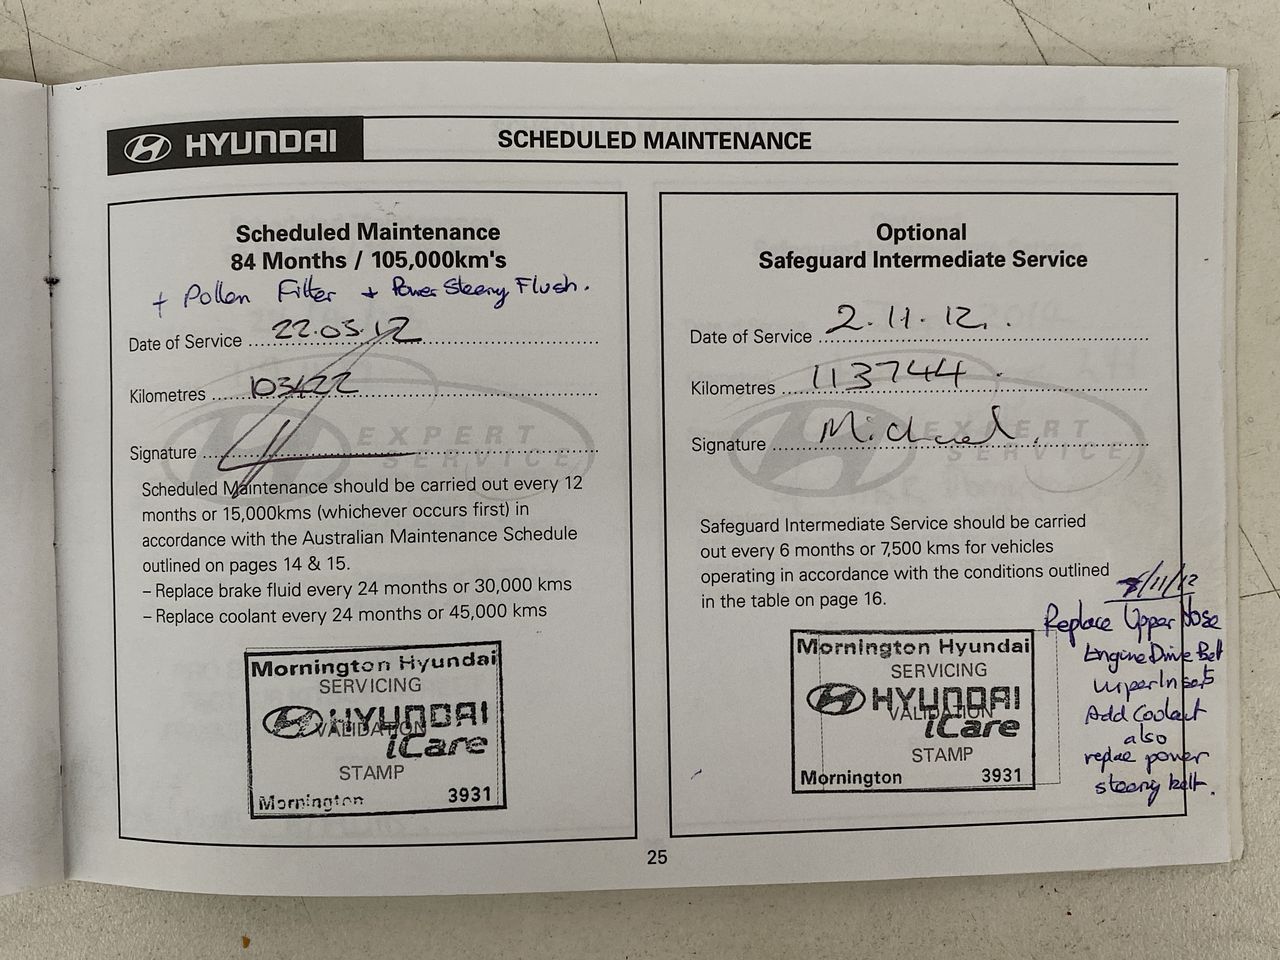 HYUNDAI
SCHEDULED MAINTENANCE
Scheduled Maintenance
84 Months / 105,000km's
+ Pollen Filter + Power Steering Flush.
Date of Service 22.05.12
Kilometres 103122
Signature
EXPERT
SERVICE
Scheduled Maintenance should be carried out every 12
months or 15,000kms (whichever occurs first) in
accordance with the Australian Maintenance Schedule
outlined on pages 14 & 15.
– Replace brake fluid every 24 months or 30,000 kms
– Replace coolant every 24 months or 45,000 kms
Mornington Hyundai
SERVICING
HYUNDAI
VALIDATION
iCare
STAMP
Mornington 3931
Optional
Safeguard Intermediate Service
Date of Service 2.11.12.
Kilometres 113744
Signature Michael.
EXPERT
SERVICE
Safeguard Intermediate Service should be carried
out every 6 months or 7,500 kms for vehicles
operating in accordance with the conditions outlined
in the table on page 16.
Mornington Hyundai
SERVICING
HYUNDAI
VALIDATION
iCare
STAMP
Mornington 3931
/11/12
Replace Upper Hose
Engine Drive Belt
Wiper Inserts
Add Coolant
also
replace power
steering belt.
25